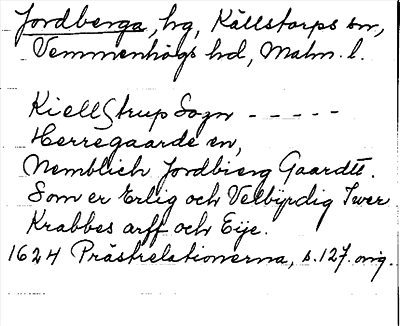 Jordberga, hg, Källstorps sn,
Vemmenhögs hd, Malm. l.
Kiellstrup Sogn - - - - -
Herregaarde en,
Nemblich Jordbierg Gaardtt.
Som er Erlig och Velbÿrdig Iwer
Krabbes arff och Eÿe.
1624 Prästrelationerna, s. 127. orig.